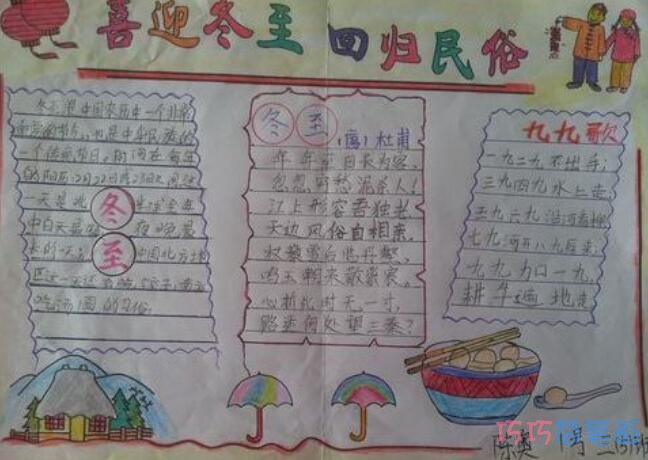 喜迎冬至 回归民俗
冬至是中国农历中一个非常
重要的节气,也是中华民族的
一个传统节日,时间在每年
的阳历12月22日或23日之间这
一天是北半球全年
中白天最短夜晚最
长的一天
中国北方
吃汤圆的习俗
冬
至
冬至
(唐)杜甫
年年至日长为客,
忽忽穷愁泥杀人!
江上形容吾独老,
天边风俗自相亲。
杖藜雪后临丹壑,
鸣玉朝来散紫宸。
心折此时无一寸,
路迷何处望三秦?
九九歌
一九二九不出手;
三九四九冰上走;
五九六九沿河看柳
七九河开八九雁来;
九九加一九,
耕牛遍地走
陈奥
巧巧简笔画